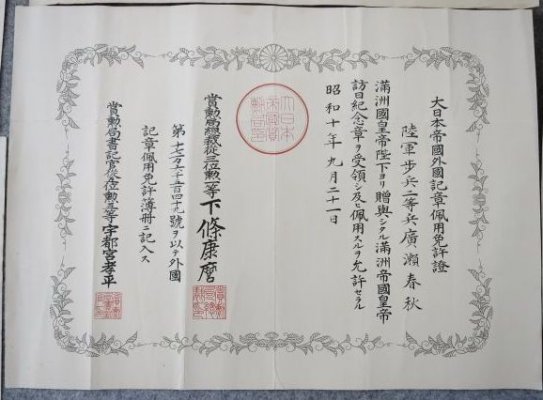 大日本帝國外國記章佩用免許證
陸軍歩兵二等兵廣瀬春秋
滿洲國皇帝陛下ヨリ贈與シタル滿洲帝國皇帝
訪日紀念章ヲ受領シ及ヒ佩用スルヲ允許セラル
昭和十年九月二十一日
大日本
賞勲局總裁從三位勲二等下條康麿
第十七万二千二百四十九號ヲ以テ外國
記章佩用免許簿冊ニ記入ス
賞勲局書記官從位勲等宇都宮孝平